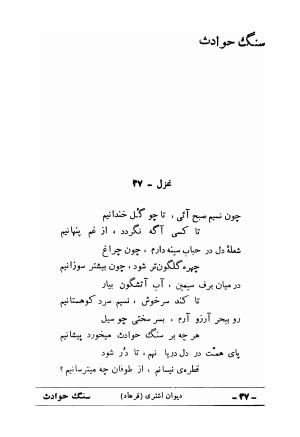 سنگ حوادث
غزل - ۳۷
چون نسیم سبح آئی ، تا چو گل خندانیم
تا کسی آگه نگردد ، از غم پنهانیم
شعلهٔ دل در حباب سینه دارم ، چون چراغ
چهره گلگون‌تر شود ، چون بیشتر سوزانیم
در میان برف سیمین ، آب آتشگون بیار
تا کند سرخوش ، نسیم سرد کوهستانیم
رو ببحر آرزو آرم ، بسر سختی چو سیل
هر چه بر سنگ حوادث میخورد پیشانیم
پای همّت در دل دریا نهم ، تا دُر شود
قطره‌ی نیسانم ، از طوفان چه میترسانیم ؟
- ۳۷ -
دیوان اشتری (فرهاد)
سنگ حوادث